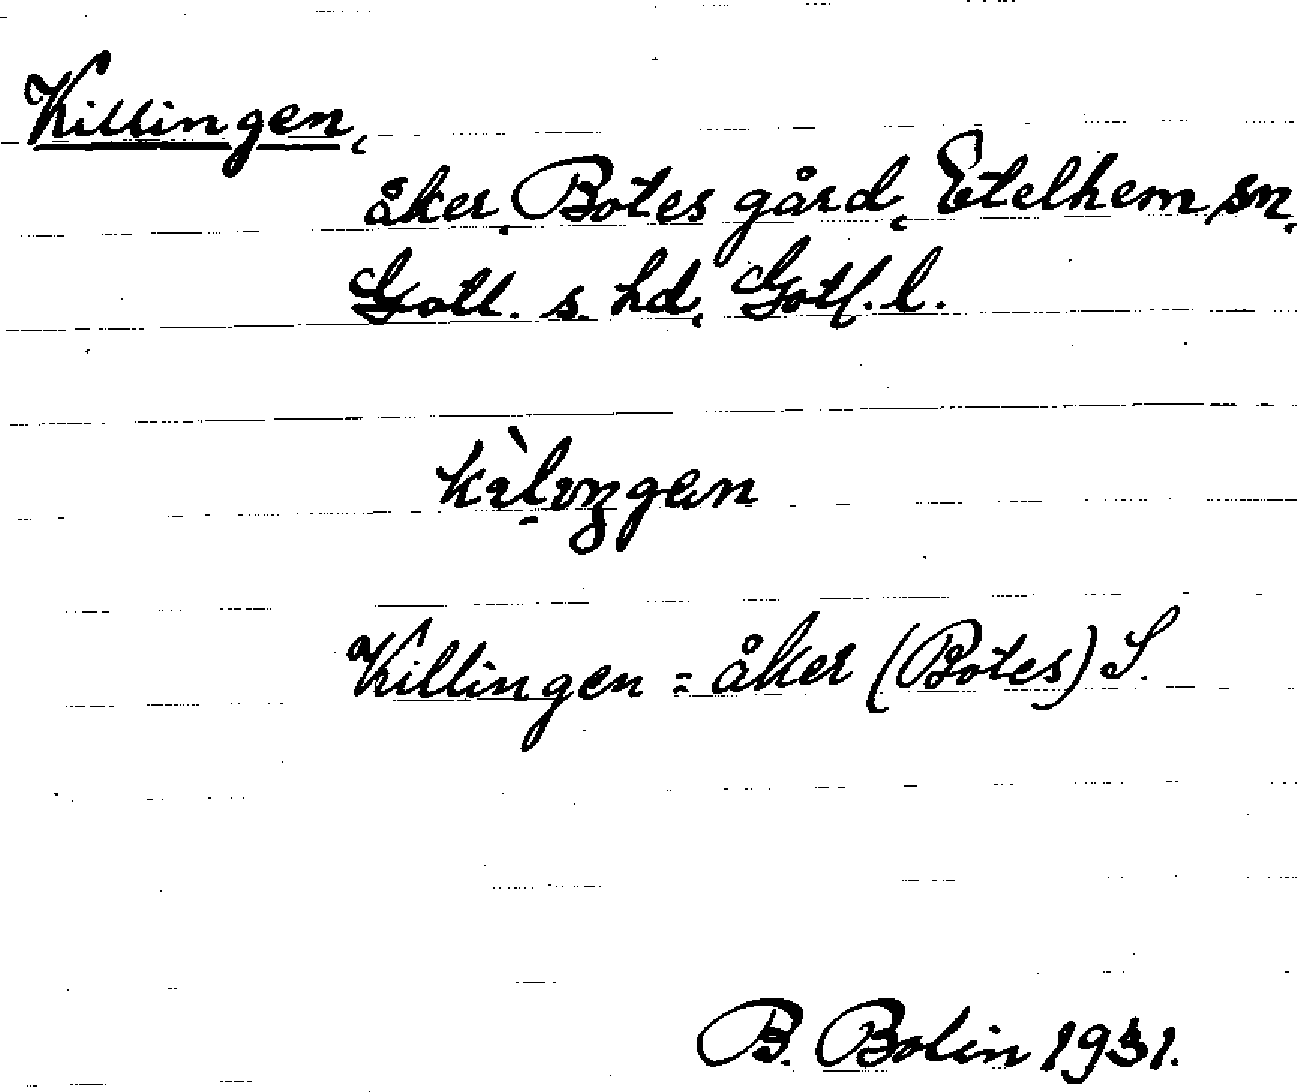 Killingen,
åker, Botes gård, Etelhem sn,
Gotl. s. hd, Gotl. l.
Killingen = åker (Botes) S.
B. Bolin 1931.